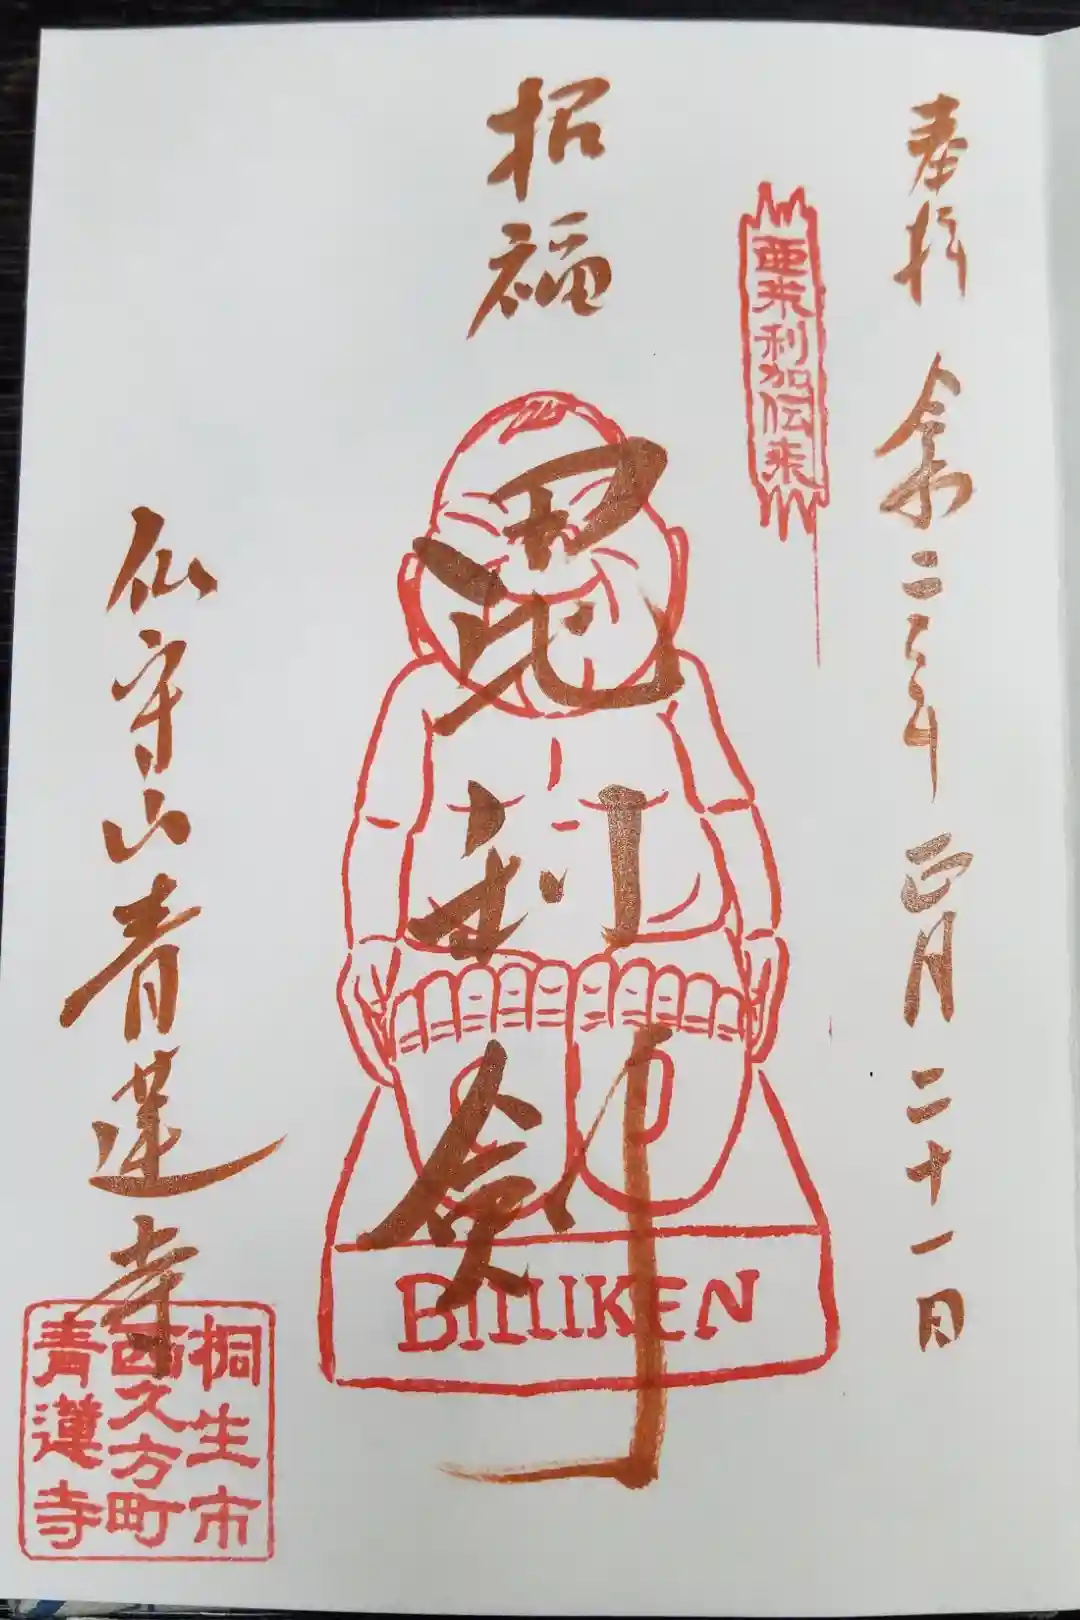 奉拝 令和二年 正月二十一日
亜米利加伝来
招福
毘利剣
BILLIKEN
仙守山青蓮寺
桐生市
西久方町
青蓮寺